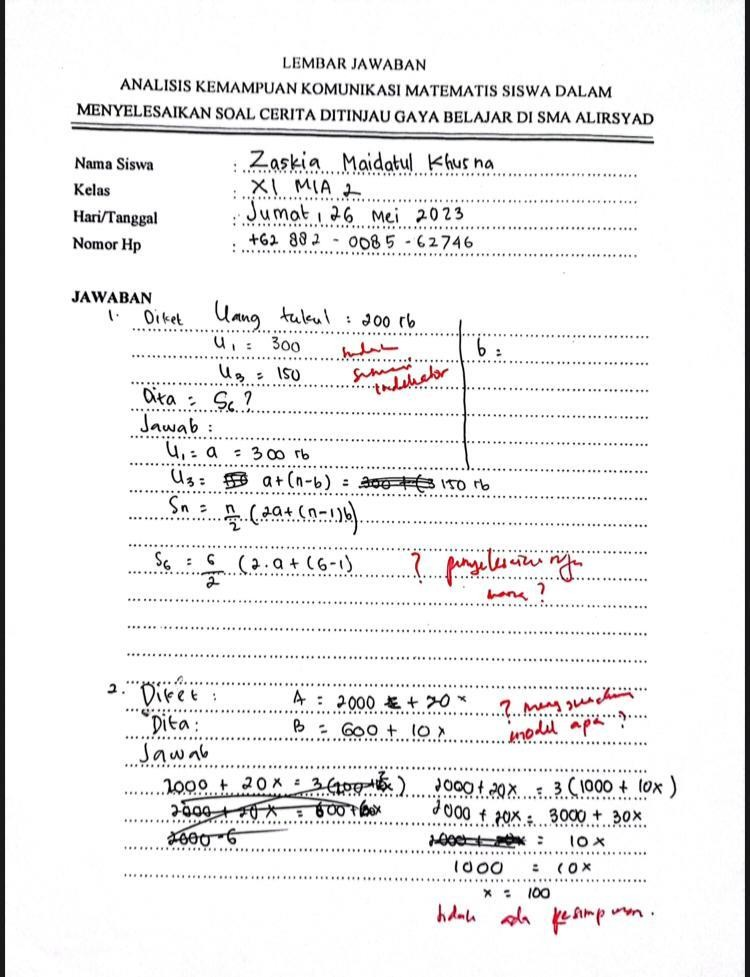 LEMBAR JAWABAN
ANALISIS KEMAMPUAN KOMUNIKASI MATEMATIS SISWA DALAM
MENYELESAIKAN SOAL CERITA DITINJAU GAYA BELAJAR DI SMA ALIRSYAD
Nama Siswa : Zaskia Maidatul Khusna
Kelas : XI MIA 2
Hari/Tanggal : Jumat, 26 Mei 2023
Nomor Hp : +62 882 - 0085 - 62746
JAWABAN
1. Diket Uang tukul : 200 rb
U1 = 300 tidak b =
U3 = 150 sesuai indikator
Dita = S6 ?
Jawab :
U1 = a = 300 rb
U3 = a + (n-b) = 150 rb
Sn = n/2 (2a + (n-1)b)
S6 = 6/2 (2.a + (6-1) ? penyelesaian nya
mana ?
2. Diket : A = 2000 + 20x ?
Dita : B = 600 + 10x model apa ?
Jawab
2000 + 20x = 3( ) 2000 + 20x = 3 (1000 + 10x)
2000 + 20x = 600 + 60x 2000 + 20x = 3000 + 30x
2000 - 6 = 10x
1000 = 10x
x = 100
tidak ada kesimpulan.